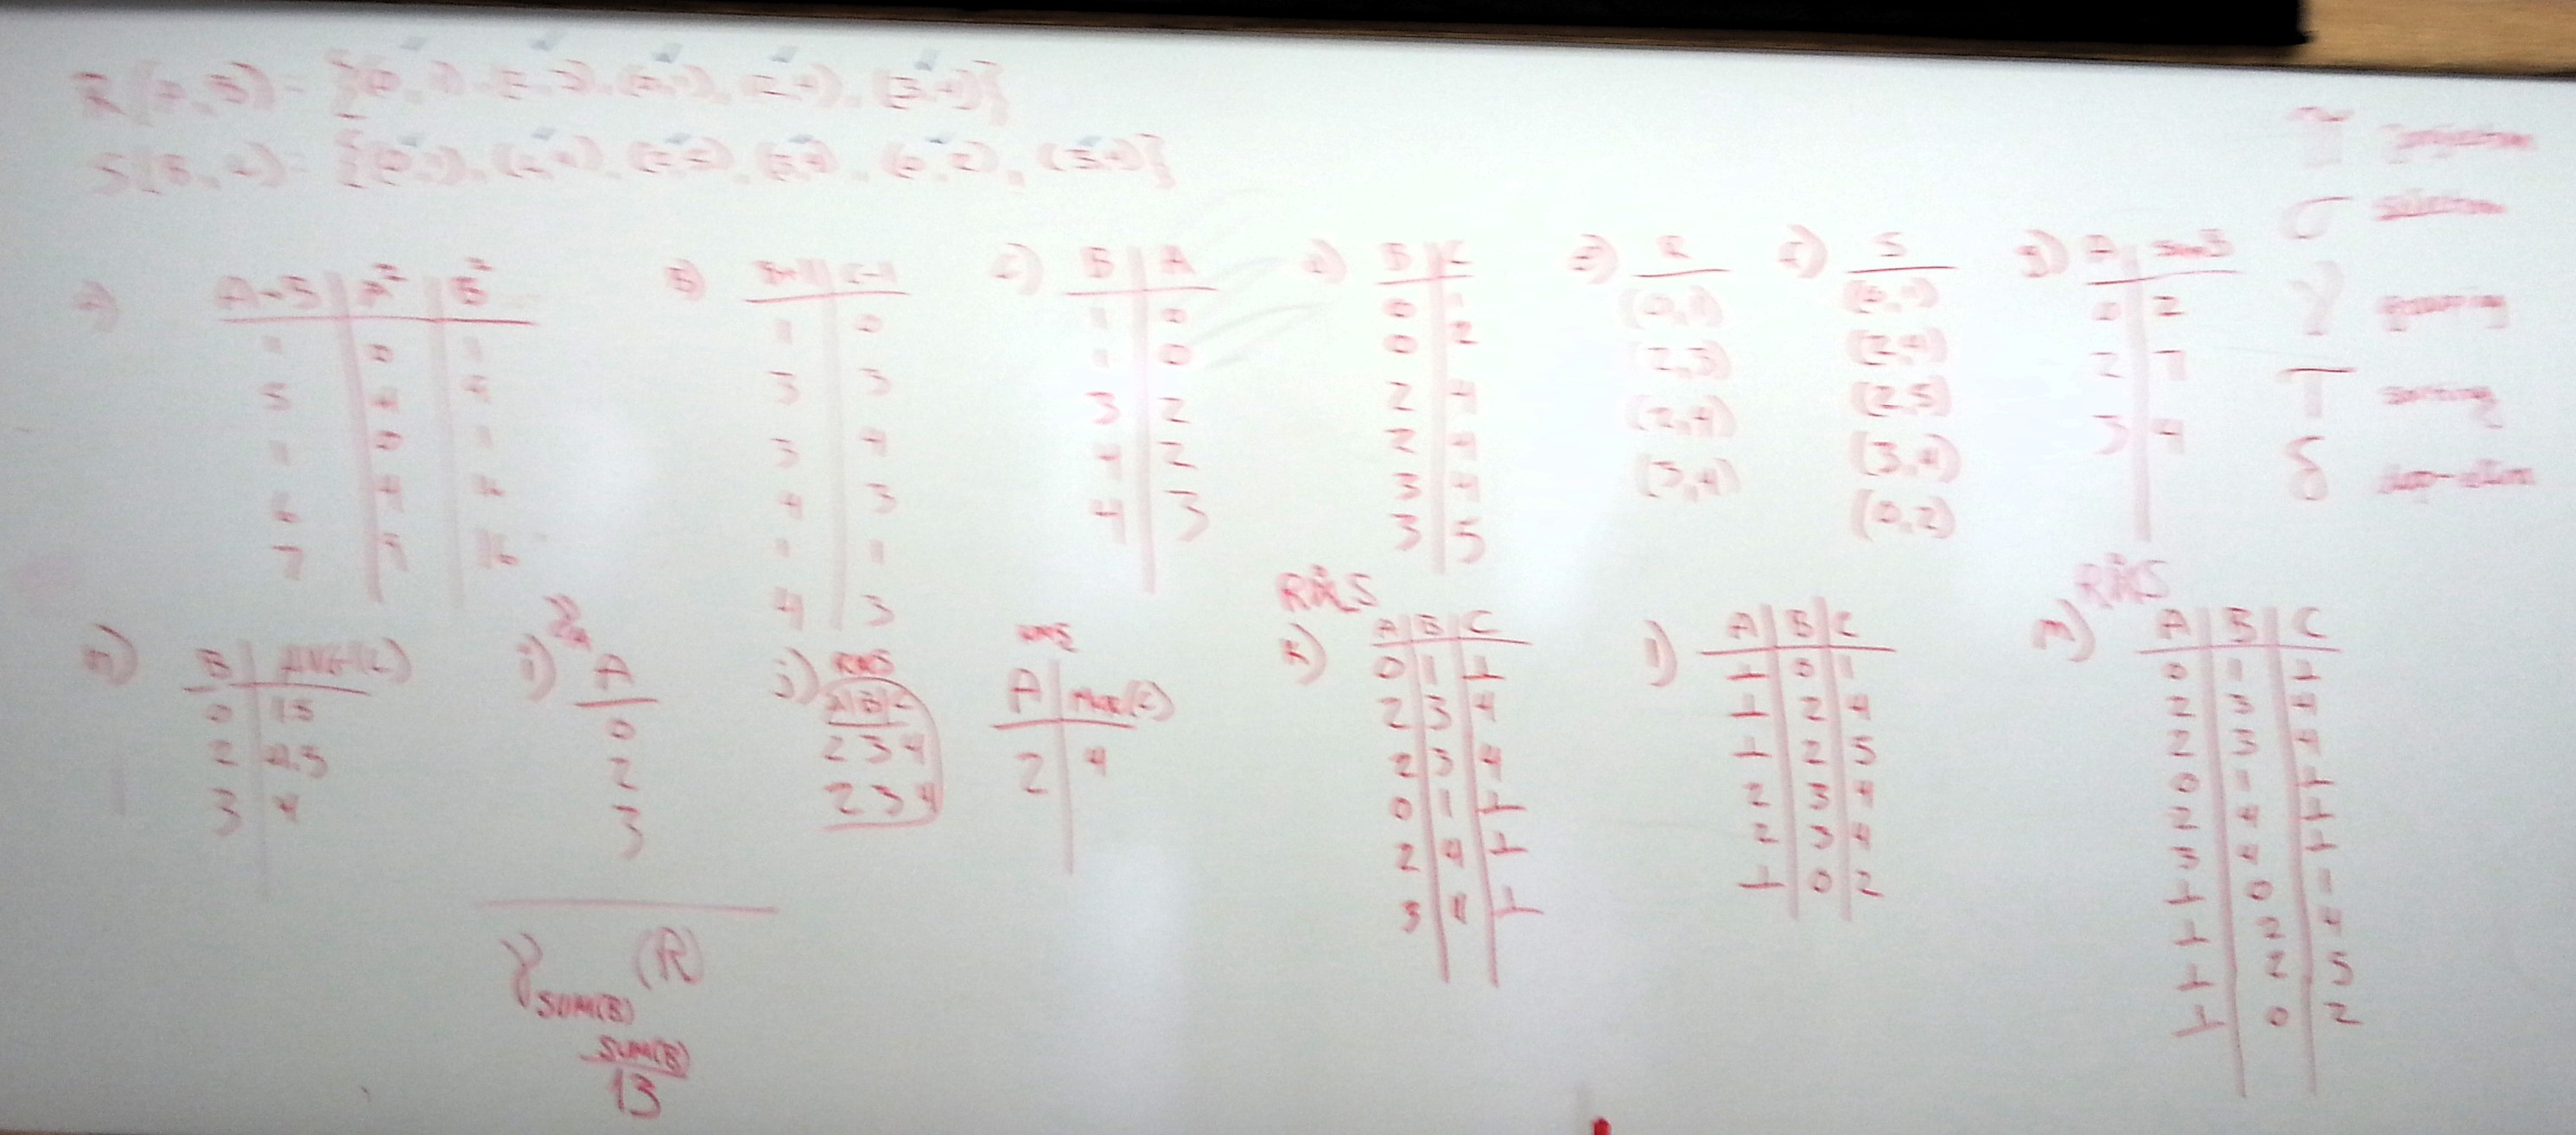 R(A,B) = {(0,1), (2,3), (0,1), (2,4), (3,4)}
S(B,C) = {(0,1), (2,4), (2,5), (3,4), (0,2), (3,4)}
π projection
σ selection
γ grouping
τ sorting
δ dup-elim
a)
A+B | A² | B²
1 0 1
5 4 9
1 0 1
6 4 16
7 9 16
b)
B+1 | C-1
1 0
3 3
3 4
4 3
1 1
4 3
c)
B | A
1 0
1 0
3 2
4 2
4 3
d)
B | C
0 1
0 2
2 4
2 4
3 4
3 5
e)
R
(0,1)
(2,3)
(2,4)
(3,4)
f)
S
(0,1)
(2,4)
(2,5)
(3,4)
(0,2)
g)
A | SumB
0 2
2 7
3 4
h)
B | AVG(C)
0 1.5
2 4.5
3 4
i)
γA
A
0
2
3
γSUM(B) (R)
SUM(B)
13
j)
R⋈S
A|B|C
2 3 4
2 3 4
A | Max(C)
2 4
k)
R⟕S
A|B|C
0 1 ⊥
2 3 4
2 3 4
0 1 ⊥
2 4 ⊥
3 4 ⊥
l)
A|B|C
⊥ 0 1
⊥ 2 4
⊥ 2 5
2 3 4
2 3 4
⊥ 0 2
m)
R⋈S
A | B | C
0 1 ⊥
2 3 4
2 3 4
0 1 ⊥
2 4 ⊥
3 4 ⊥
⊥ 0 1
⊥ 2 4
⊥ 2 5
⊥ 0 2